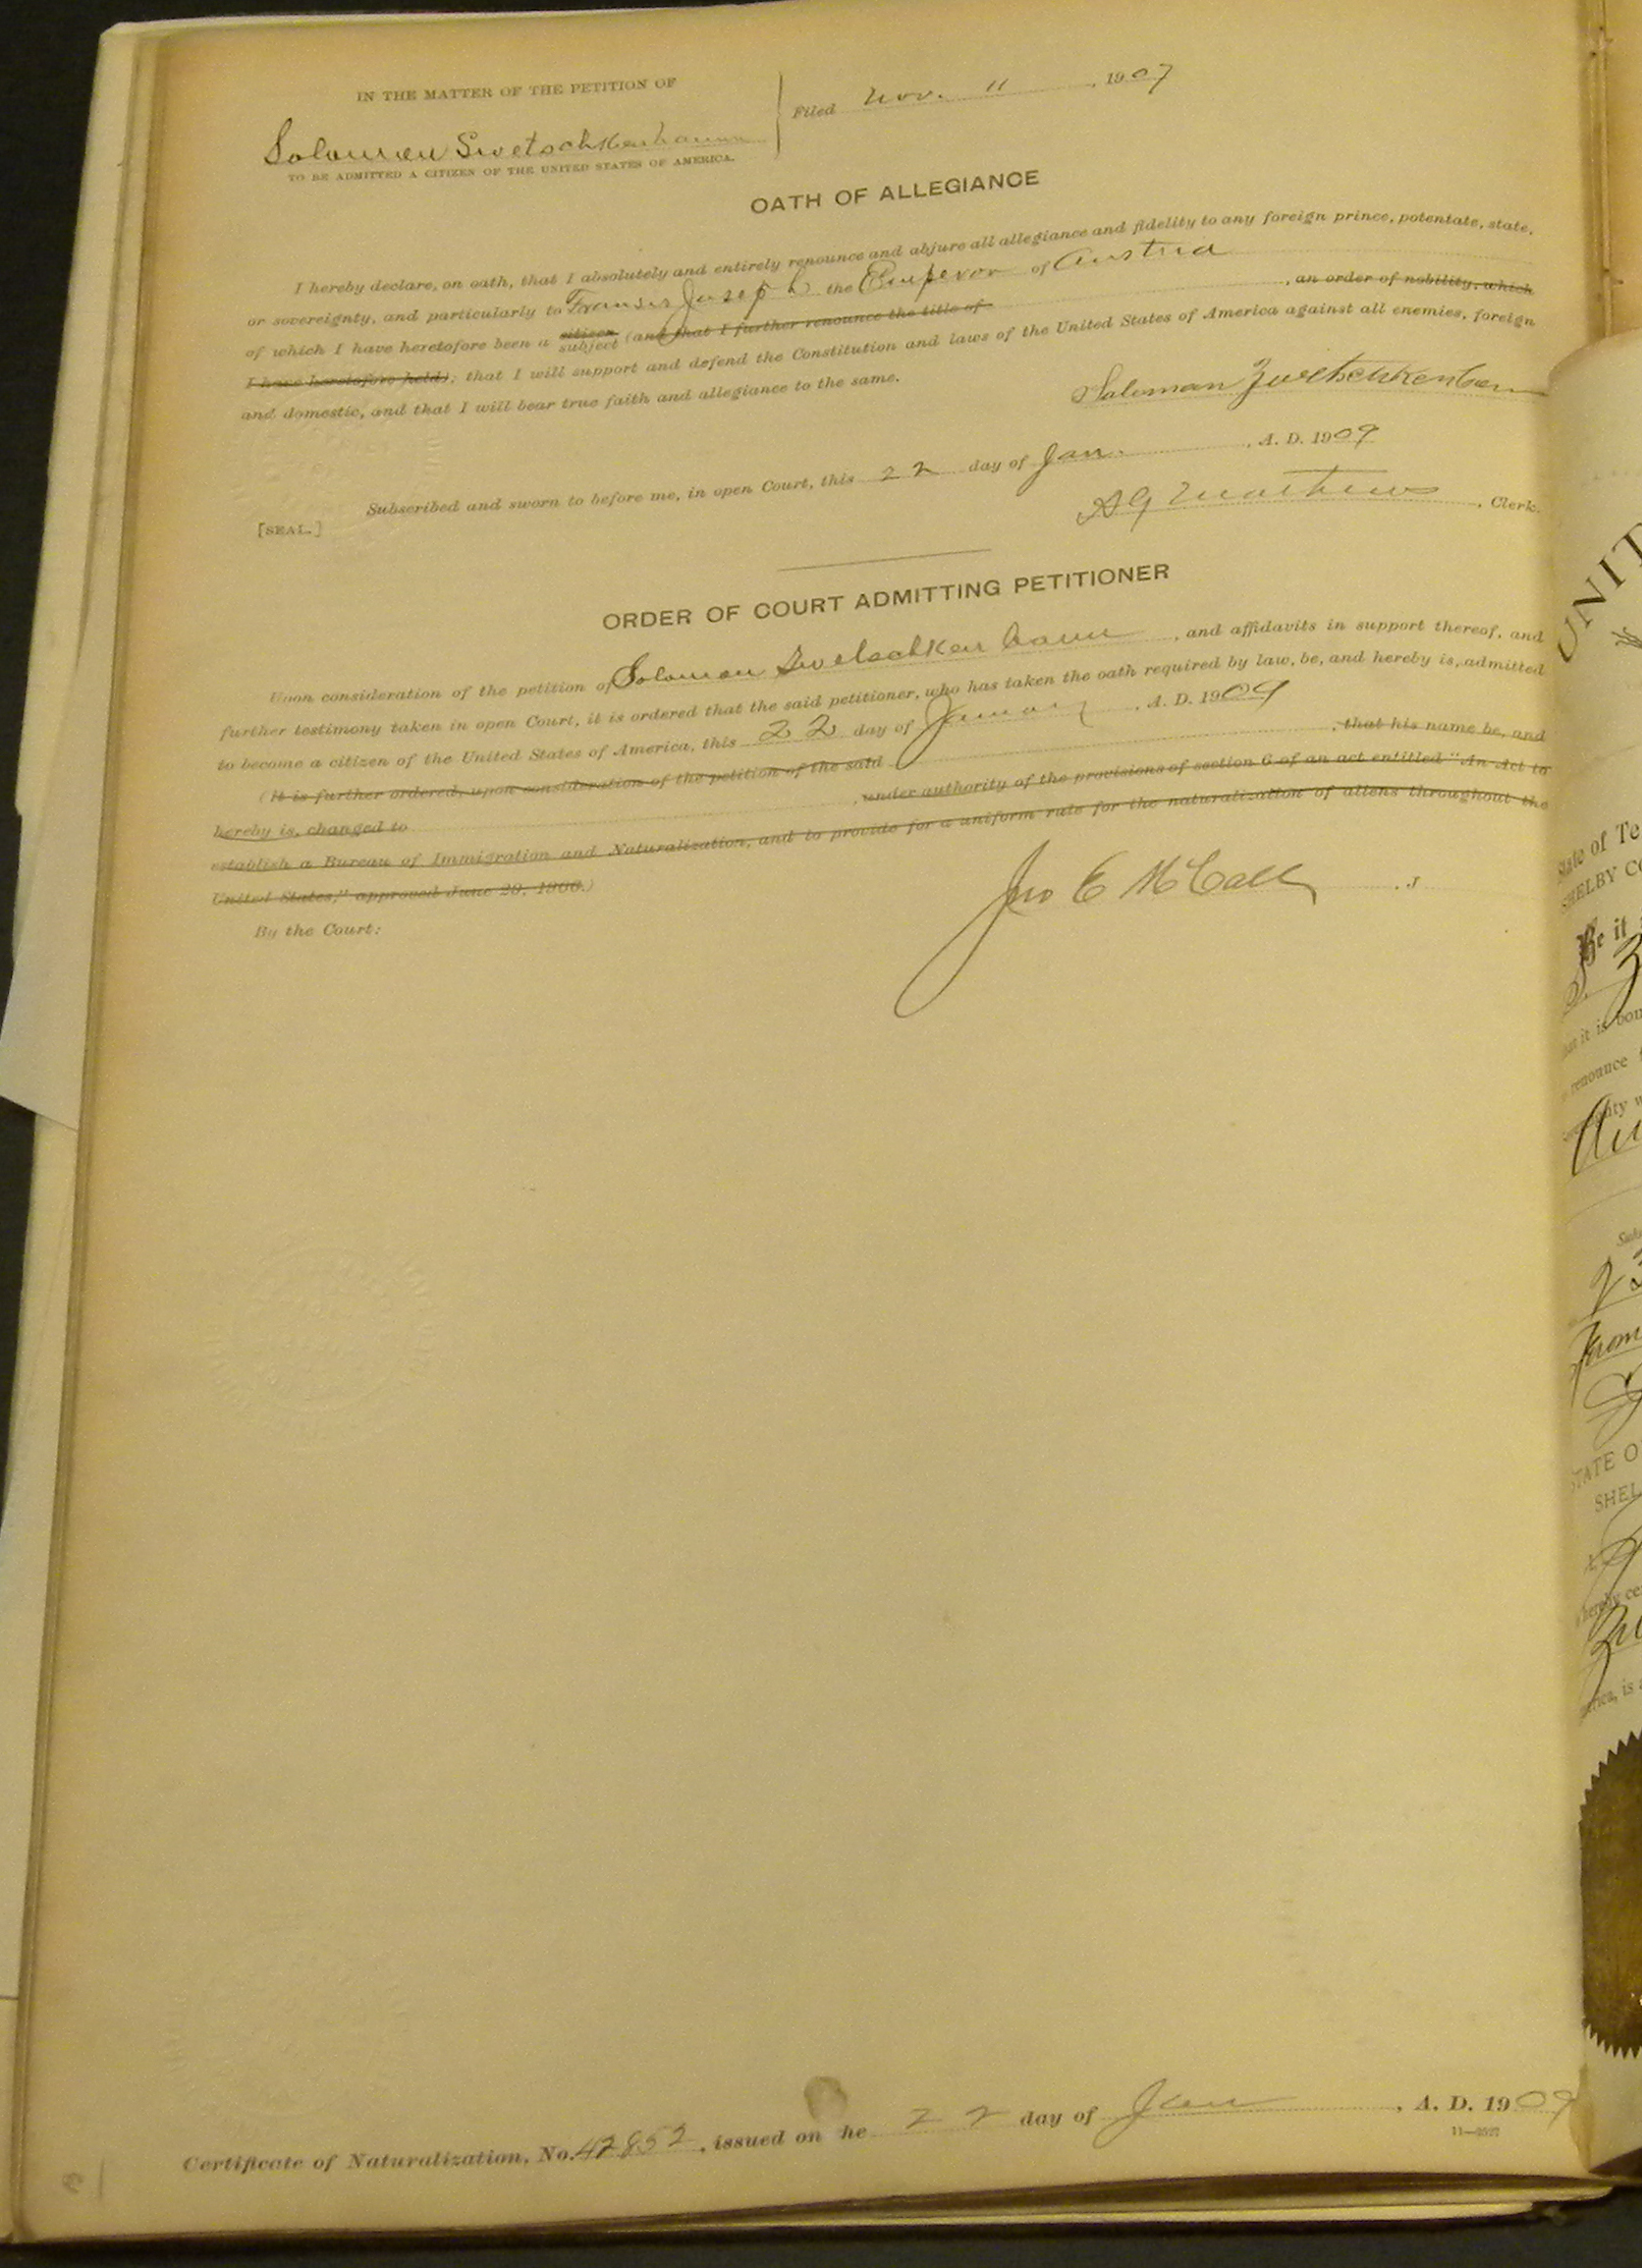 IN THE MATTER OF THE PETITION OF
Solomon Swetschkenbaum
TO BE ADMITTED A CITIZEN OF THE UNITED STATES OF AMERICA.
Filed Nov. 11, 1907
OATH OF ALLEGIANCE
I hereby declare, on oath, that I absolutely and entirely renounce and abjure all allegiance and fidelity to any foreign prince, potentate, state,
or sovereignty, and particularly to Joseph the Emperor of Austria
of which I have heretofore been a citizen subject (and that I further renounce the title of , an order of nobility, which
I have heretofore held); that I will support and defend the Constitution and laws of the United States of America against all enemies, foreign
and domestic, and that I will bear true faith and allegiance to the same.
Saloman
Subscribed and sworn to before me, in open Court, this 22 day of Jan. , A. D. 1909
[SEAL.]
Mathews, Clerk.
ORDER OF COURT ADMITTING PETITIONER
Upon consideration of the petition of Solomon Swetschkenbaum, and affidavits in support thereof, and
further testimony taken in open Court, it is ordered that the said petitioner, who has taken the oath required by law, be, and hereby is, admitted
to become a citizen of the United States of America, this 22 day of January, A. D. 1909
(It is further ordered, upon consideration of the petition of the said , that his name be, and
hereby is, changed to , under authority of the provisions of section 6 of an act entitled "An Act to
establish a Bureau of Immigration and Naturalization, and to provide for a uniform rule for the naturalization of aliens throughout the
United States," approved June 29, 1906.)
By the Court:
Jno E McCall, J
Certificate of Naturalization, No. 42852, issued on he 22 day of Jan , A. D. 1909
UNIT
State of Te
SHELBY CO
Be it
renounce
STATE O
SHEL